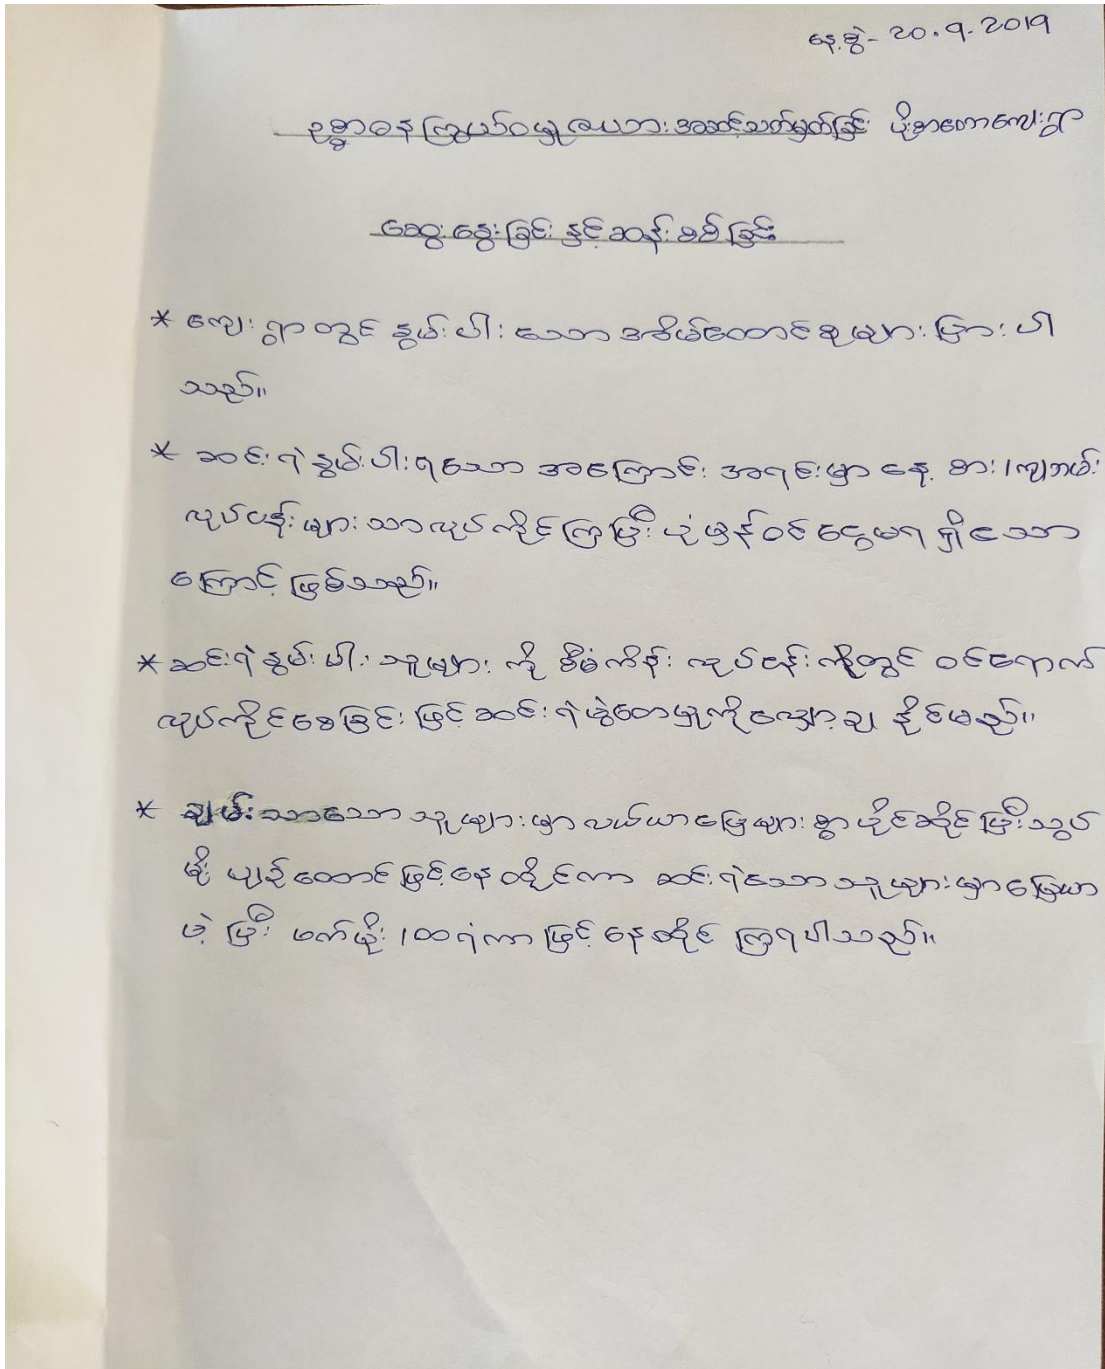 နေ့စွဲ- 20.9.2019
ဥစ္စာဓနကြွယ်ဝမှုဇယားအဆင့်သတ်မှတ်ခြင်း ပိုးစာတောကျေးရွာ
ဆွေးနွေးခြင်းနှင့်ဆန်းစစ်ခြင်း
* ကျေးရွာတွင် နွမ်းပါးသော အိမ်ထောင်စုများ များပါ
သည်။
* ဆင်းရဲနွမ်းပါးရသော အကြောင်းအရင်းမှာ နေ့စား/ကျဘမ်း
လုပ်ငန်းများသာလုပ်ကိုင်ကြပြီး ပုံမှန်ဝင်ငွေမရရှိသော
ကြောင့်ဖြစ်သည်။
* ဆင်းရဲနွမ်းပါးသူများ ကို စီမံကိန်းလုပ်ငန်းတွင် ဝင်ရောက်
လုပ်ကိုင်စေခြင်းဖြင့်ဆင်းရဲမွဲတေမှုကိုလျှော့ချနိုင်မည်။
* ချမ်းသာသောသူများမှာလယ်ယာမြေများစွာပိုင်ဆိုင်ပြီးသွပ်
မိုးပျဉ်ထောင်ဖြင့်နေထိုင်ကာ ဆင်းရဲသောသူများမှာမြေယာ
မဲ့ပြီး ဖက်မိုး/ထရံကာဖြင့်နေထိုင်ကြရပါသည်။